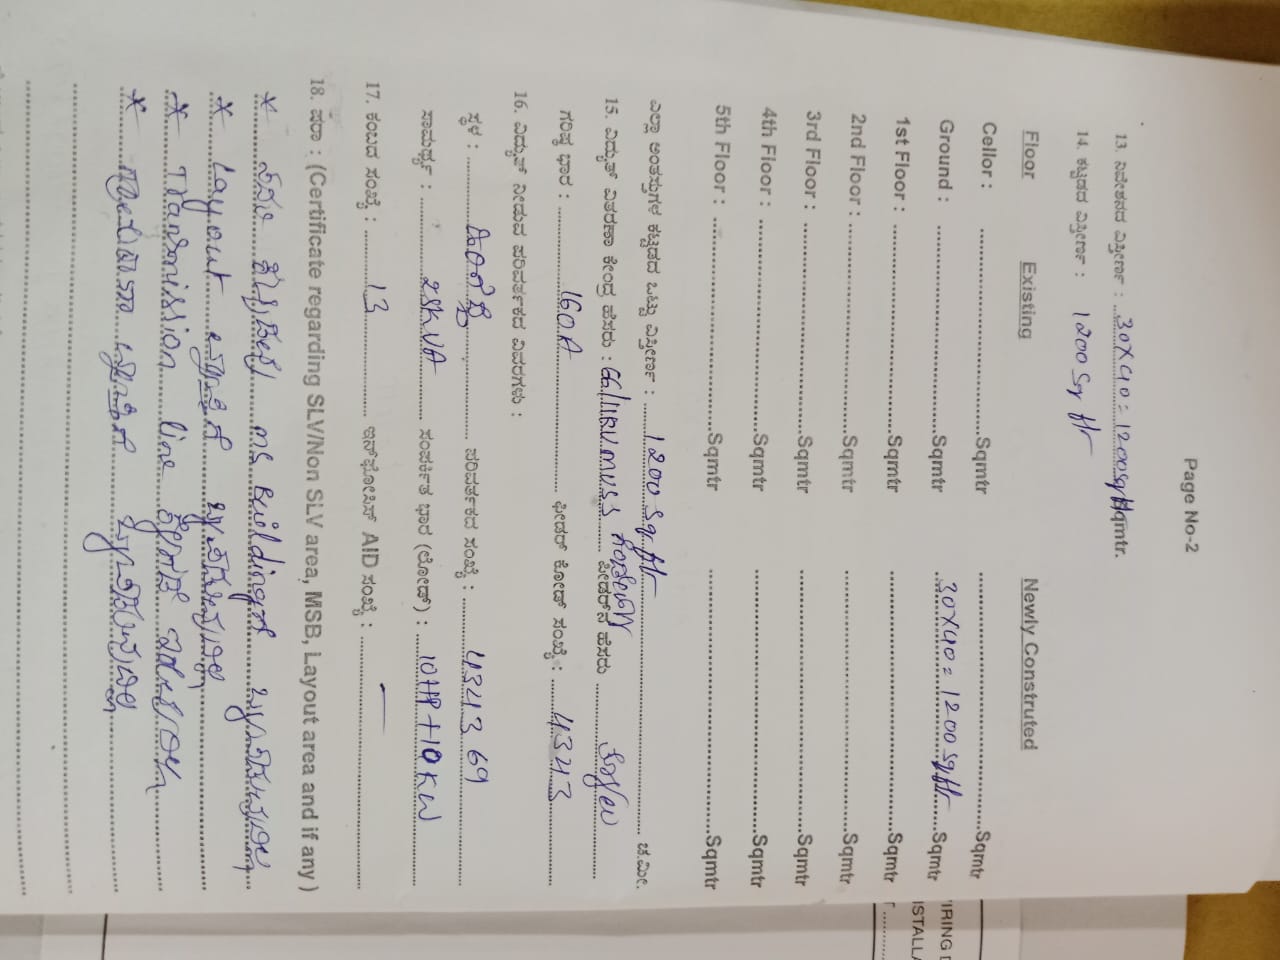 Page No-2
13. ನಿವೇಶನದ ವಿಸ್ತೀರ್ಣ : 30X40=1200Sq ft Sqmtr.
14. ಕಟ್ಟಡದ ವಿಸ್ತೀರ್ಣ : 1200 Sq ft
Floor Existing Newly Construted
Cellor : Sqmtr Sqmtr
Ground : Sqmtr 30X40=1200 Sq.ft Sqmtr
1st Floor : Sqmtr Sqmtr
2nd Floor : Sqmtr Sqmtr
3rd Floor : Sqmtr Sqmtr
4th Floor : Sqmtr Sqmtr
5th Floor : Sqmtr Sqmtr
ಎಲ್ಲಾ ಅಂತಸ್ತುಗಳ ಕಟ್ಟಡದ ಒಟ್ಟು ವಿಸ್ತೀರ್ಣ : 1200 Sq.ft ಚ.ಮೀ.
15. ವಿದ್ಯುತ್ ವಿತರಣಾ ಕೇಂದ್ರ ಹೆಸರು : 66/11KV MUSS ಫೀಡರ್‌ನ ಹೆಸರು
ಗರಿಷ್ಠ ಭಾರ : 160A ಫೀಡರ್ ಕೋಡ್ ಸಂಖ್ಯೆ : 4343
16. ವಿದ್ಯುತ್ ನೀಡುವ ಪರಿವರ್ತಕದ ವಿವರಗಳು :
ಸ್ಥಳ : ಪರಿವರ್ತಕದ ಸಂಖ್ಯೆ : 434369
ಸಾಮರ್ಥ್ಯ : 25KVA ಸಂಪರ್ಕಿತ ಭಾರ (ಲೋಡ್) : 10HP+10KW
17. ಕಂಬದ ಸಂಖ್ಯೆ : 13 ಇನ್‌ಫೋಸಿಸ್ AID ಸಂಖ್ಯೆ : —
18. ಷರಾ : (Certificate regarding SLV/Non SLV area, MSB, Layout area and if any )
* ಸದರಿ ಕಟ್ಟಡವು MS Buildingಗೆ
* Layout ವ್ಯಾಪ್ತಿಗೆ
* Transmission line ಕೆಳಗಡೆ
* ವ್ಯಾಪ್ತಿಗೆ